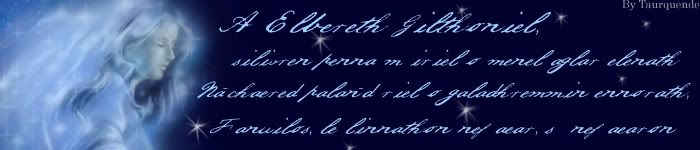 By Taurquende
A Elbereth Gilthoniel,
silivren penna m iriel o menel aglar elenath
Nachaered paland riel o galadhremmin ennorath,
Fanuilos, le linnathon nef aear, s nef aearon